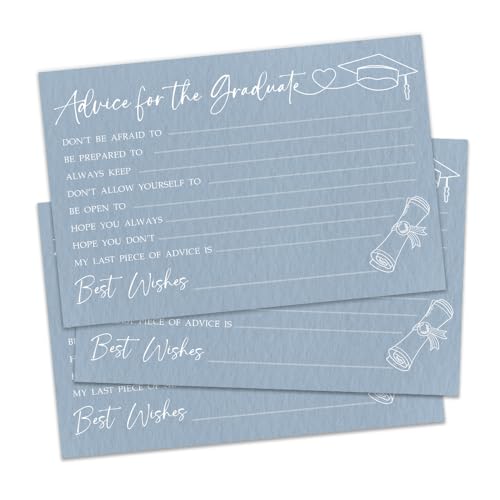 Advice for the Graduate
DON'T BE AFRAID TO
BE PREPARED TO
ALWAYS KEEP
DON'T ALLOW YOURSELF TO
BE OPEN TO
HOPE YOU ALWAYS
HOPE YOU DON'T
MY LAST PIECE OF ADVICE IS
Best Wishes
MY LAST PIECE OF ADVICE IS
Best Wishes
MY LAST PIECE OF
Best Wishes